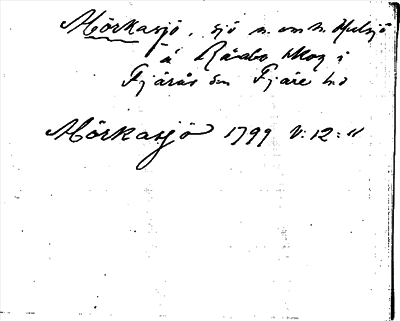 Mörkasjö, sjö n. om n. Hulsjö
å Råabo skog i
Fjärås sn Fjäre hd
Mörkasjö 1799 V:12:11